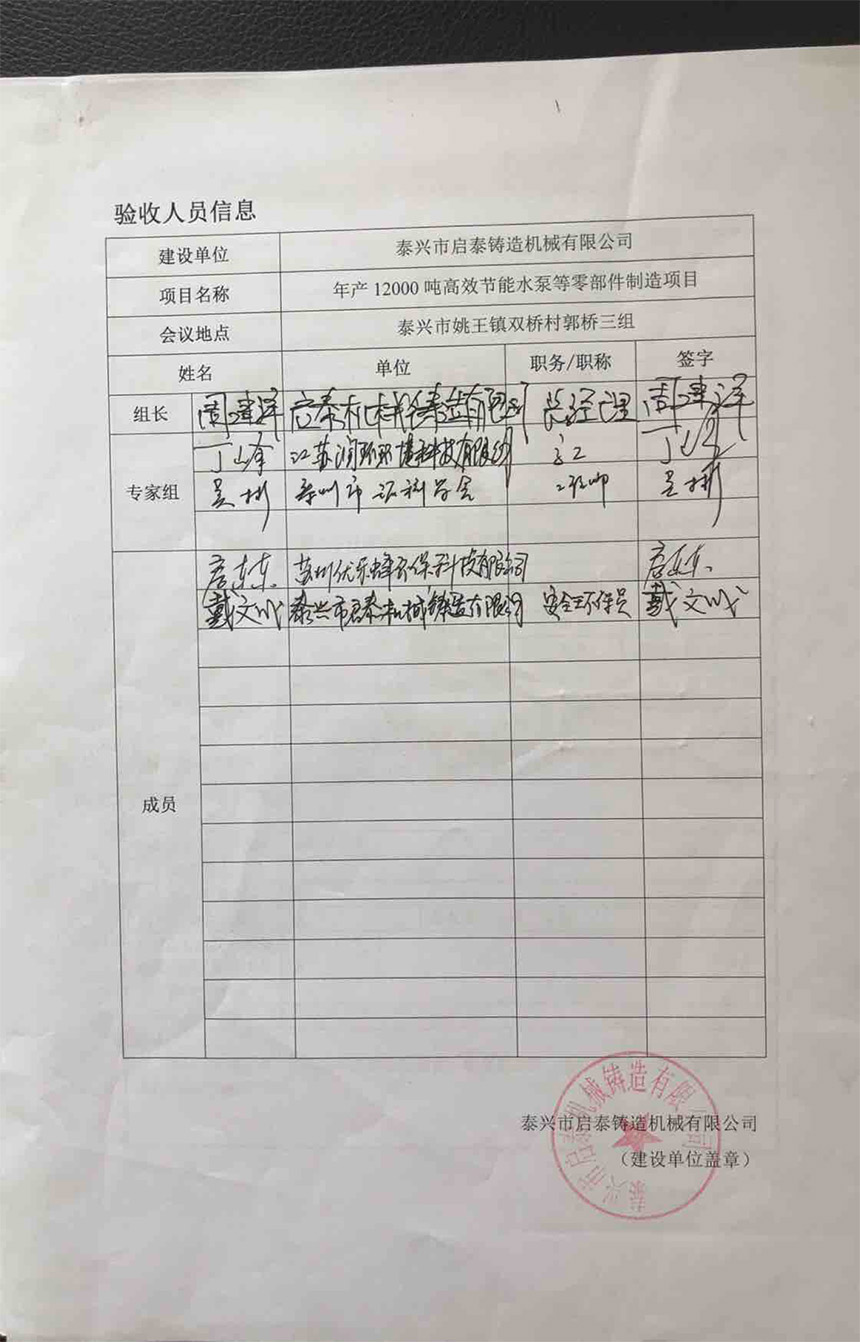 验收人员信息
建设单位 泰兴市启泰铸造机械有限公司
项目名称 年产 12000 吨高效节能水泵等零部件制造项目
会议地点 泰兴市姚王镇双桥村郭桥三组
姓名 单位 职务/职称 签字
组长 周建泽 启泰机械铸造有限公司 总经理 周建泽
丁 江苏润环环境科技有限公司 高工 丁
专家组 吴彬 泰州市 学会 工程师 吴彬
苏州优乐蜂环保科技有限公司
戴文成 泰兴市启泰机械铸造有限公司 安全环保员 戴文成
成员
泰兴市启泰铸造机械有限公司
（建设单位盖章）
泰兴市启泰机械铸造有限公司